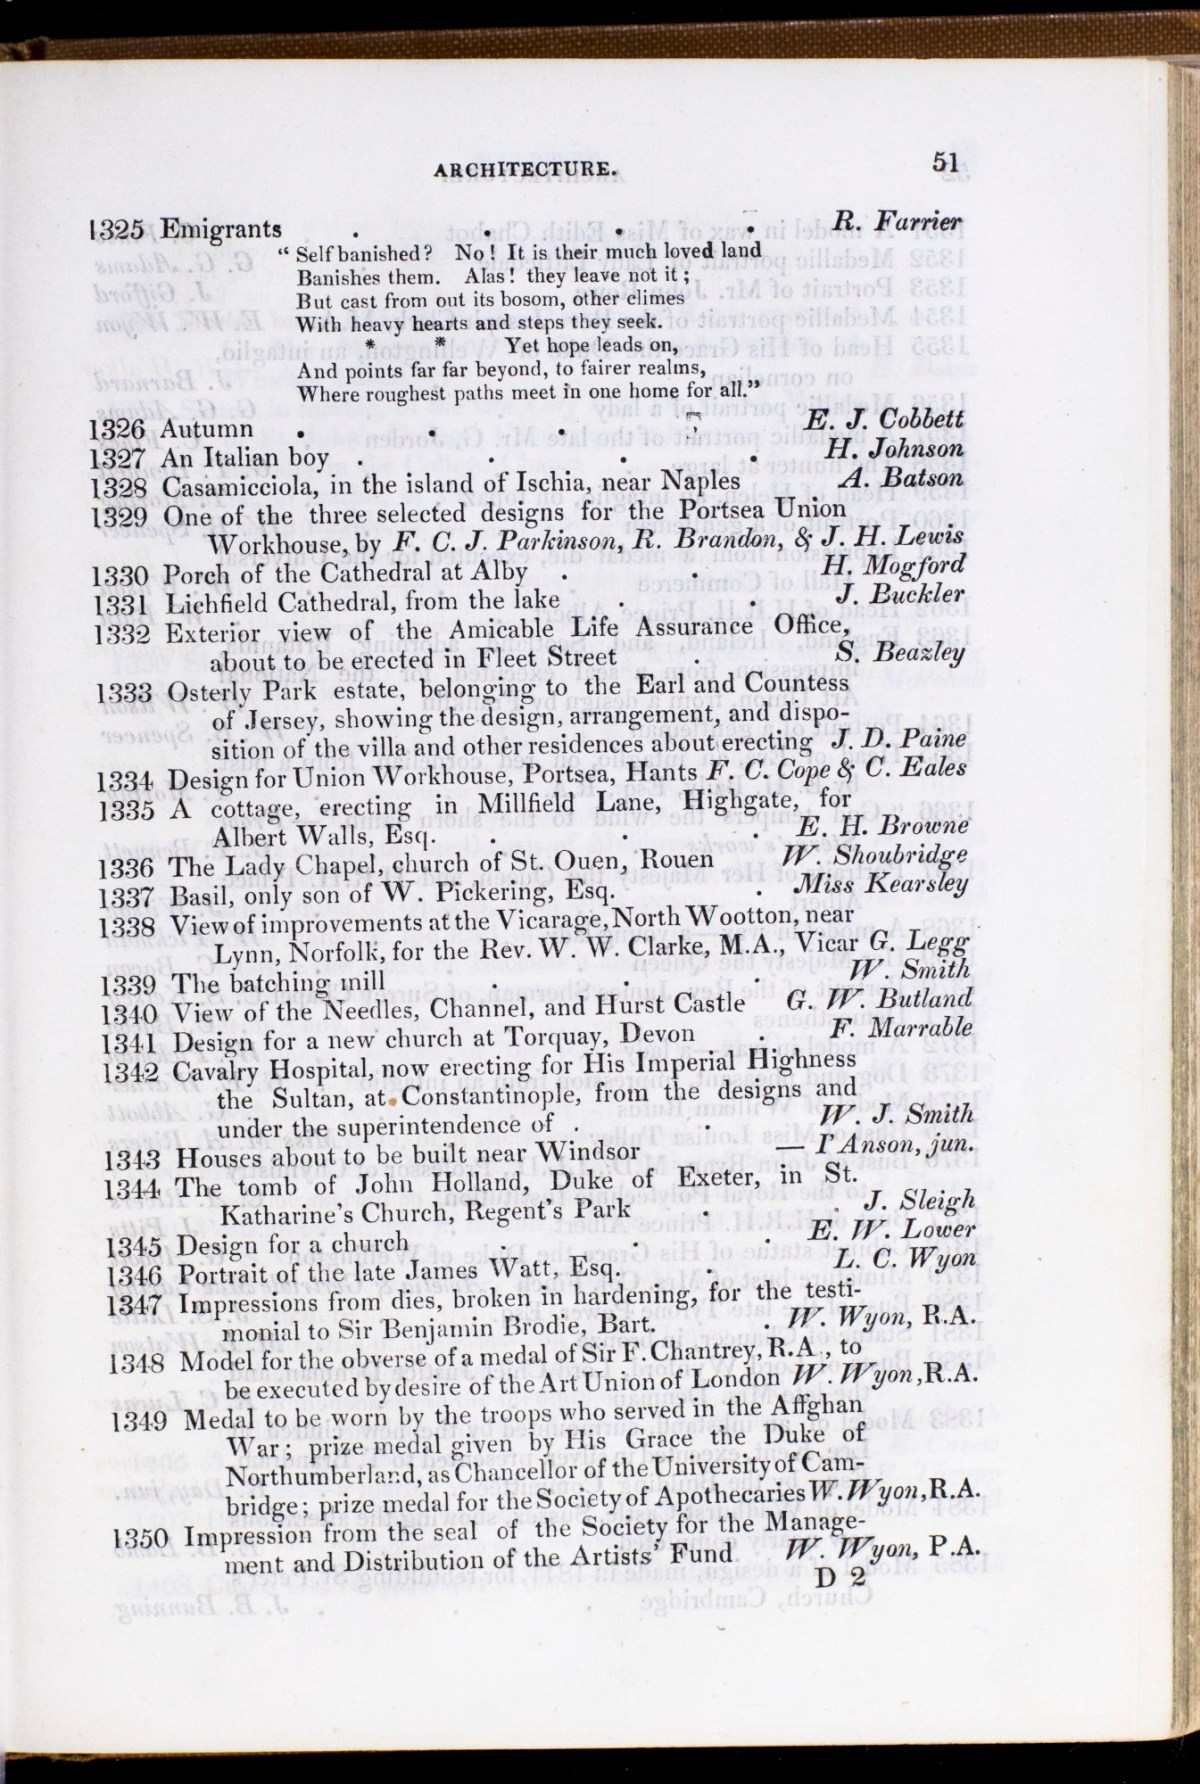 ARCHITECTURE. 51
1325 Emigrants . . . . R. Farrier
" Self banished? No! It is their much loved land
Banishes them. Alas! they leave not it;
But cast from out its bosom, other climes
With heavy hearts and steps they seek.
* * Yet hope leads on,
And points far far beyond, to fairer realms,
Where roughest paths meet in one home for all."
1326 Autumn . . . . E. J. Cobbett
1327 An Italian boy . . . . H. Johnson
1328 Casamicciola, in the island of Ischia, near Naples A. Batson
1329 One of the three selected designs for the Portsea Union
Workhouse, by F. C. J. Parkinson, R. Brandon, & J. H. Lewis
1330 Porch of the Cathedral at Alby . . H. Mogford
1331 Lichfield Cathedral, from the lake . . J. Buckler
1332 Exterior view of the Amicable Life Assurance Office,
about to be erected in Fleet Street . S. Beazley
1333 Osterly Park estate, belonging to the Earl and Countess
of Jersey, showing the design, arrangement, and dispo-
sition of the villa and other residences about erecting J. D. Paine
1334 Design for Union Workhouse, Portsea, Hants F. C. Cope & C. Eales
1335 A cottage, erecting in Millfield Lane, Highgate, for
Albert Walls, Esq. . . . E. H. Browne
1336 The Lady Chapel, church of St. Ouen, Rouen W. Shoubridge
1337 Basil, only son of W. Pickering, Esq. . Miss Kearsley
1338 View of improvements at the Vicarage, North Wootton, near
Lynn, Norfolk, for the Rev. W. W. Clarke, M.A., Vicar G. Legg
1339 The batching mill . . . W. Smith
1340 View of the Needles, Channel, and Hurst Castle G. W. Butland
1341 Design for a new church at Torquay, Devon . F. Marrable
1342 Cavalry Hospital, now erecting for His Imperial Highness
the Sultan, at Constantinople, from the designs and
under the superintendence of . . W. J. Smith
1343 Houses about to be built near Windsor — I'Anson, jun.
1344 The tomb of John Holland, Duke of Exeter, in St.
Katharine's Church, Regent's Park . . J. Sleigh
1345 Design for a church . . . E. W. Lower
1346 Portrait of the late James Watt, Esq. . L. C. Wyon
1347 Impressions from dies, broken in hardening, for the testi-
monial to Sir Benjamin Brodie, Bart. . W. Wyon, R.A.
1348 Model for the obverse of a medal of Sir F. Chantrey, R.A., to
be executed by desire of the Art Union of London W. Wyon, R.A.
1349 Medal to be worn by the troops who served in the Affghan
War; prize medal given by His Grace the Duke of
Northumberland, as Chancellor of the University of Cam-
bridge; prize medal for the Society of Apothecaries W. Wyon, R.A.
1350 Impression from the seal of the Society for the Manage-
ment and Distribution of the Artists' Fund W. Wyon, P.A.
D 2